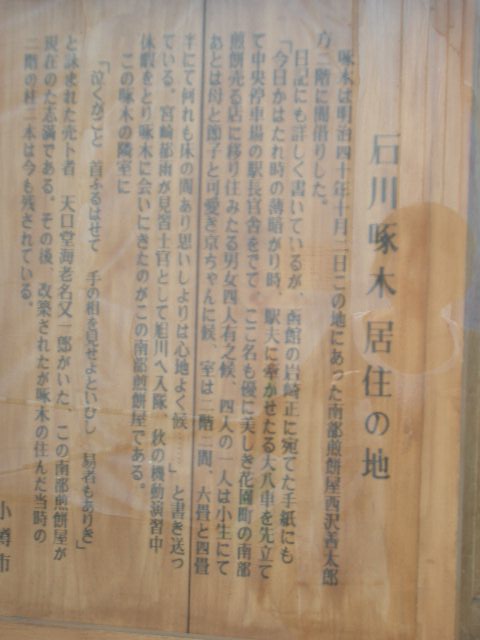 石川啄木居住の地
啄木は明治四十年十月二日この地にあった南部煎餅屋西沢善太郎
方二階に間借りした。
日記にも詳しく書いているが、函館の岩崎正に宛てた手紙にも
「今日かはたれ時の薄暗がり時、駅夫に牽かせたる大八車を先立て
て中央停車場の駅長官舎をでて、ここ名も優に美しき花園町の南部
煎餅売る店に移り住みたる男女四人有之候、四人の一人は小生にて
あとは母と節子と可愛き京ちゃんに候、室は二階二間、六畳と四畳
半にて何れも床の間あり思いしよりは心地よく候……」と書き送っ
ている。宮崎郁雨が見習士官として旭川へ入隊、秋の機動演習中
休暇をとり啄木に会いにきたのがこの南部煎餅屋である。
この啄木の隣室に
「泣くがごと 首ふるはせて 手の相を見せよといひし 易者もありき」
と詠まれた売ト者 天口堂海老名又一郎がいた、この南部煎餅屋が
現在のた志満である。その後、改築されたが啄木の住んだ当時の
二階の柱二本は今も残されている。
小樽市